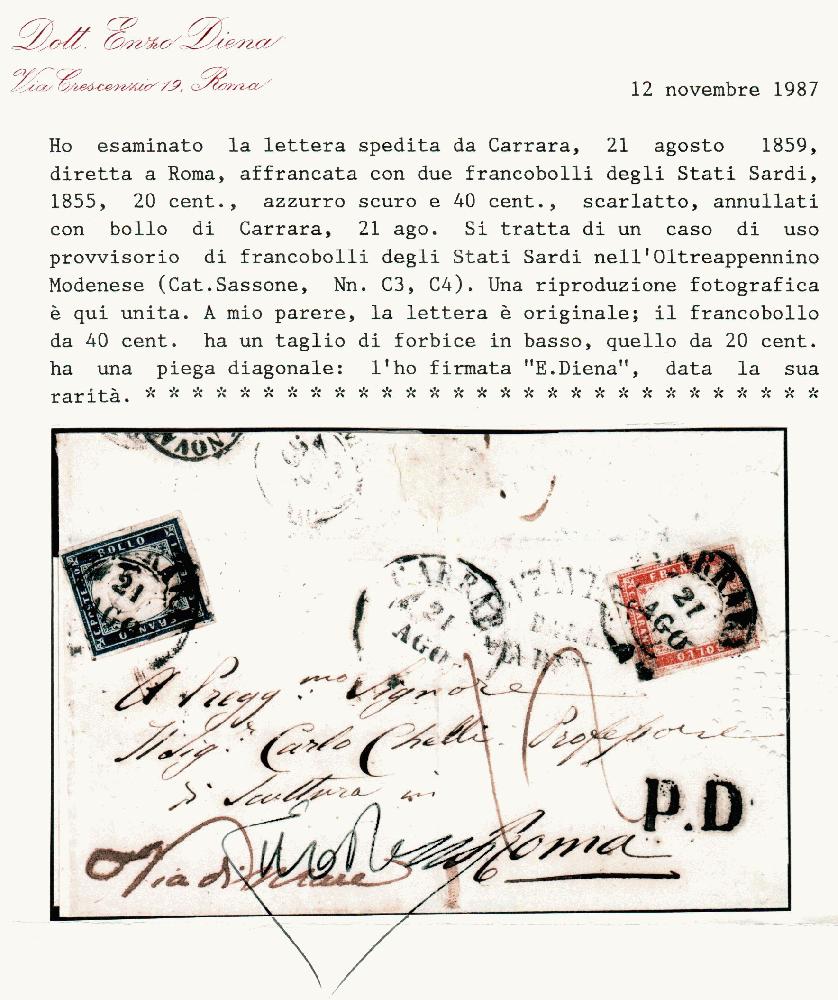 Dott. Enzo Diena
Via Crescenzio 19, Roma
12 novembre 1987
Ho esaminato la lettera spedita da Carrara, 21 agosto 1859,
diretta a Roma, affrancata con due francobolli degli Stati Sardi,
1855, 20 cent., azzurro scuro e 40 cent., scarlatto, annullati
con bollo di Carrara, 21 ago. Si tratta di un caso di uso
provvisorio di francobolli degli Stati Sardi nell'Oltreappennino
Modenese (Cat.Sassone, Nn. C3, C4). Una riproduzione fotografica
è qui unita. A mio parere, la lettera è originale; il francobollo
da 40 cent. ha un taglio di forbice in basso, quello da 20 cent.
ha una piega diagonale: l'ho firmata "E.Diena", data la sua
rarità. * * * * * * * * * * * * * * * * * * * * * * * * * * * * *
BOLLO
21
FRANCO
CARRARA
21
AGO
21
AGO
BOLLO
A Pregg.mo Signore
Il Sig.r Carlo Chelli Professore
di Scultura in
Roma
P.D
Via di